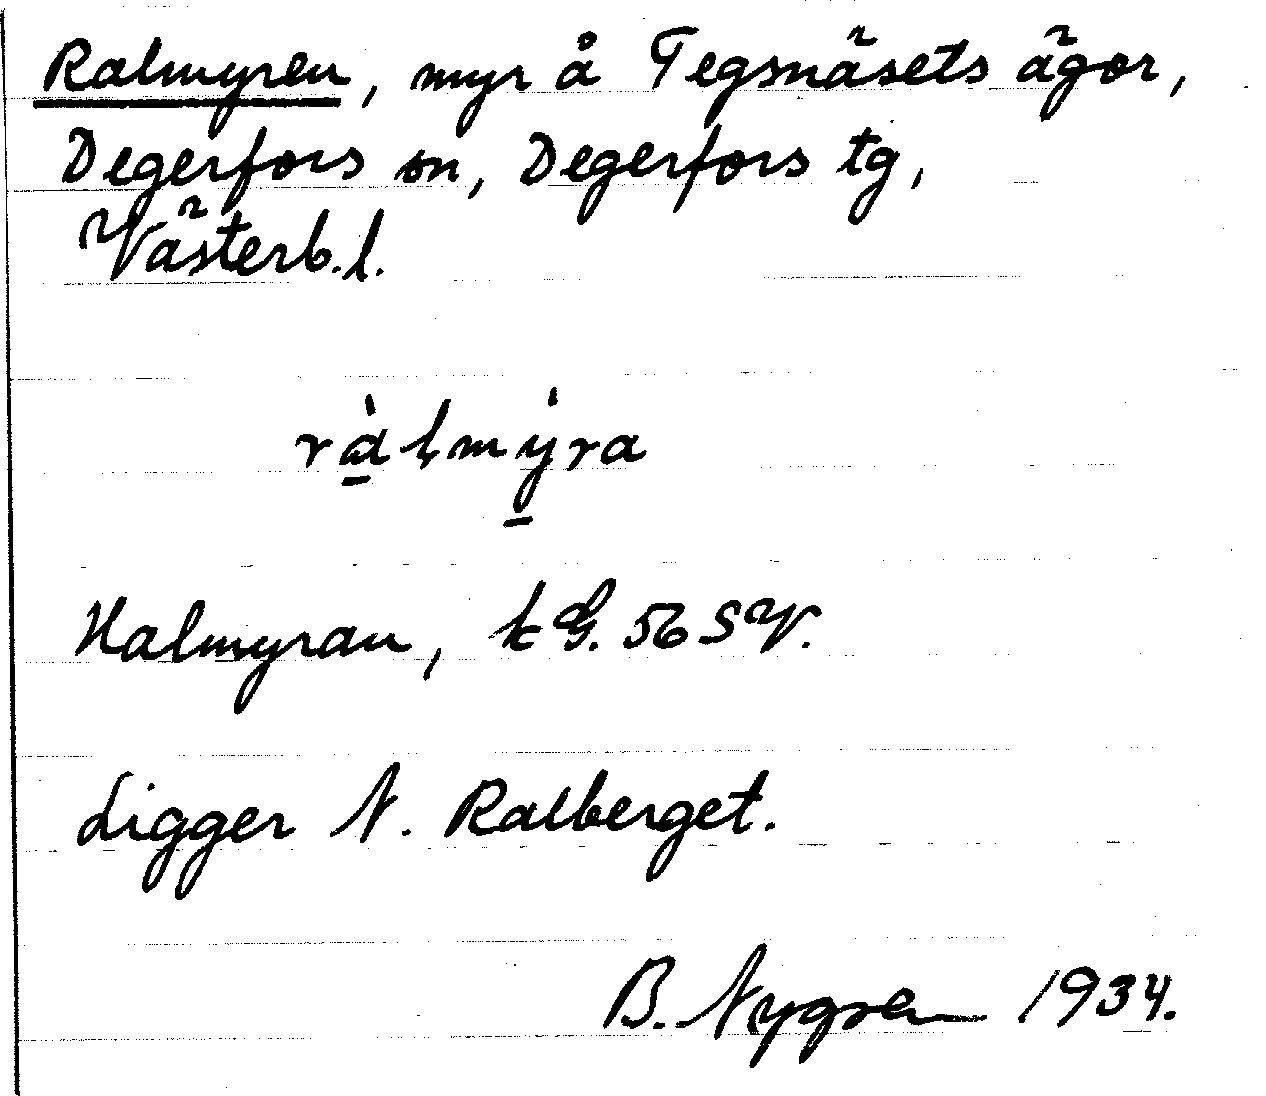 Ralmyren, myr å Tegsnäsets ägor,
Degerfors sn, Degerfors tg,
Västerb.l.
ràlmýra
Halmyran, kG. 56 SV.
Ligger N. Ralberget.
B. Nygren 1934.